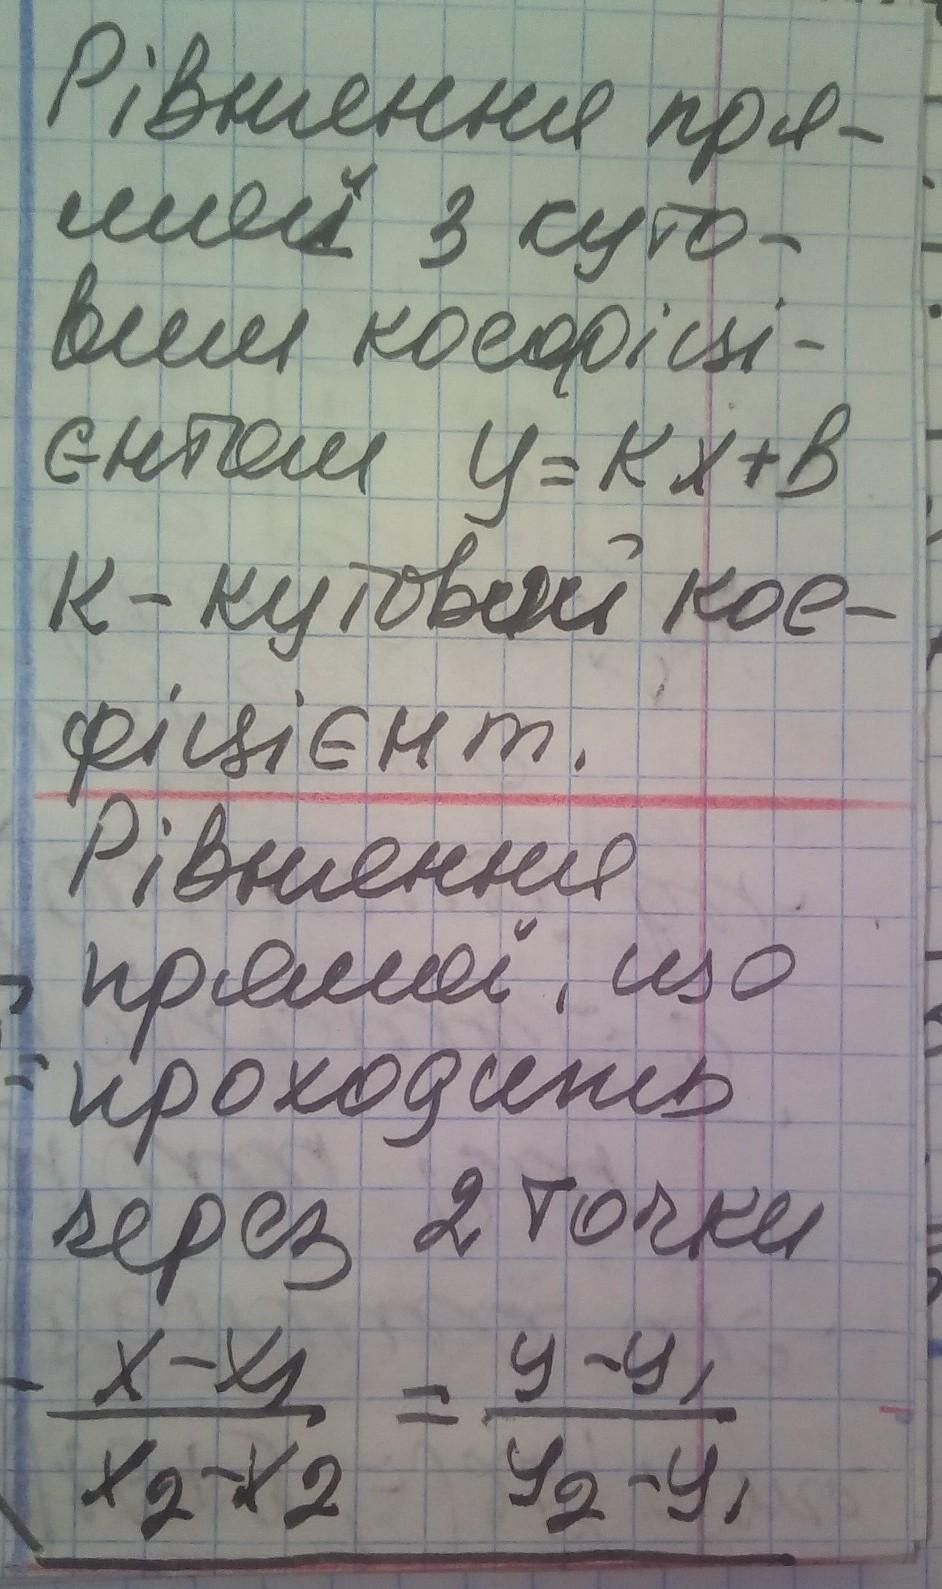 Рівняння пря-
мої з куто-
вим коефіці-
єнтом y=kx+b
k - кутовий кое-
фіцієнт.
Рівняння
прямої, що
проходить
через 2 точки
x-x₁ / x₂-x₂ = y-y₁ / y₂-y₁